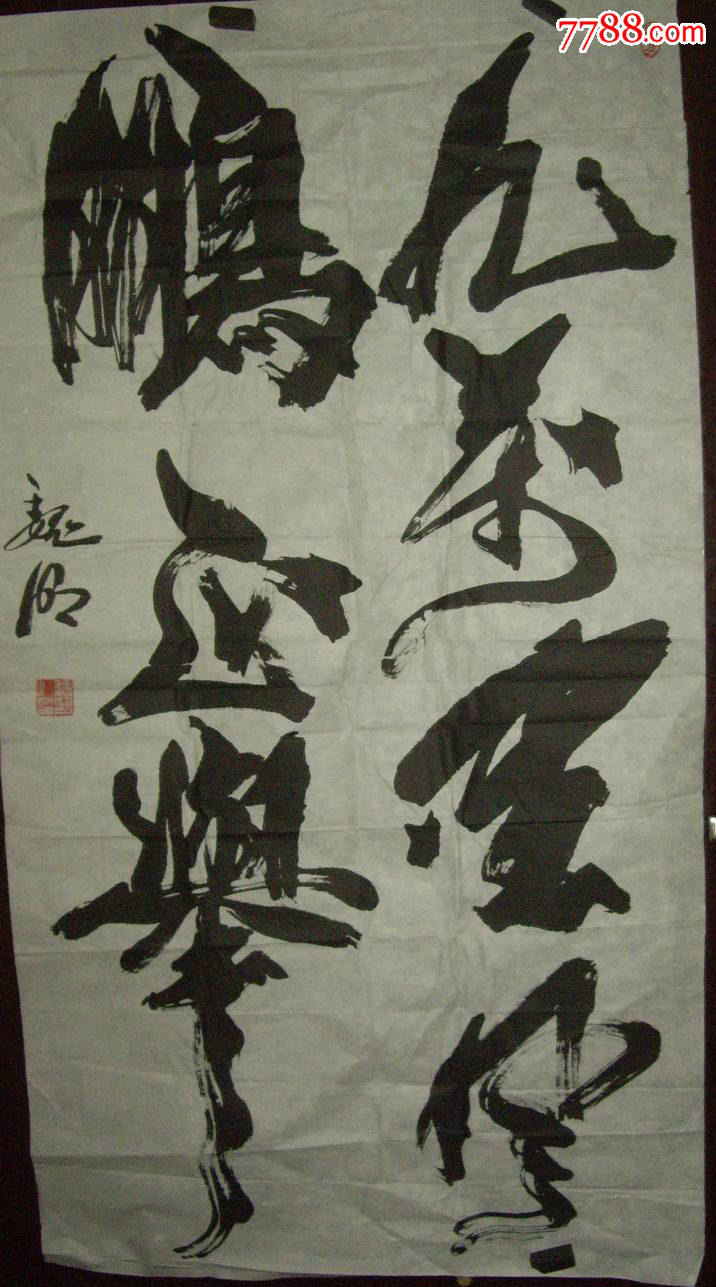 九萬里風
鵬正舉
魏明
7788.com